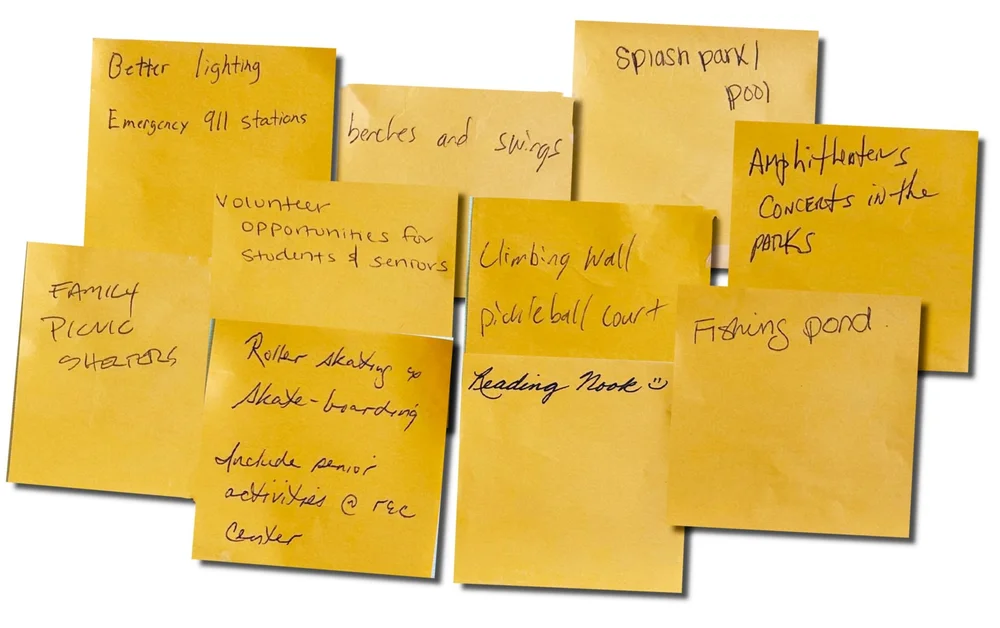 Better lighting
Emergency 911 stations
benches and swings
Splash park/
pool
Amphitheaters
Concerts in the
PARKS
Volunteer
opportunities for
students & seniors
Climbing Wall
pickleball court
FAMILY
PICNIC
SHELTERS
Roller skating &
skate-boarding
Include senior
activities @ rec
Center
Reading Nook :)
Fishing pond.